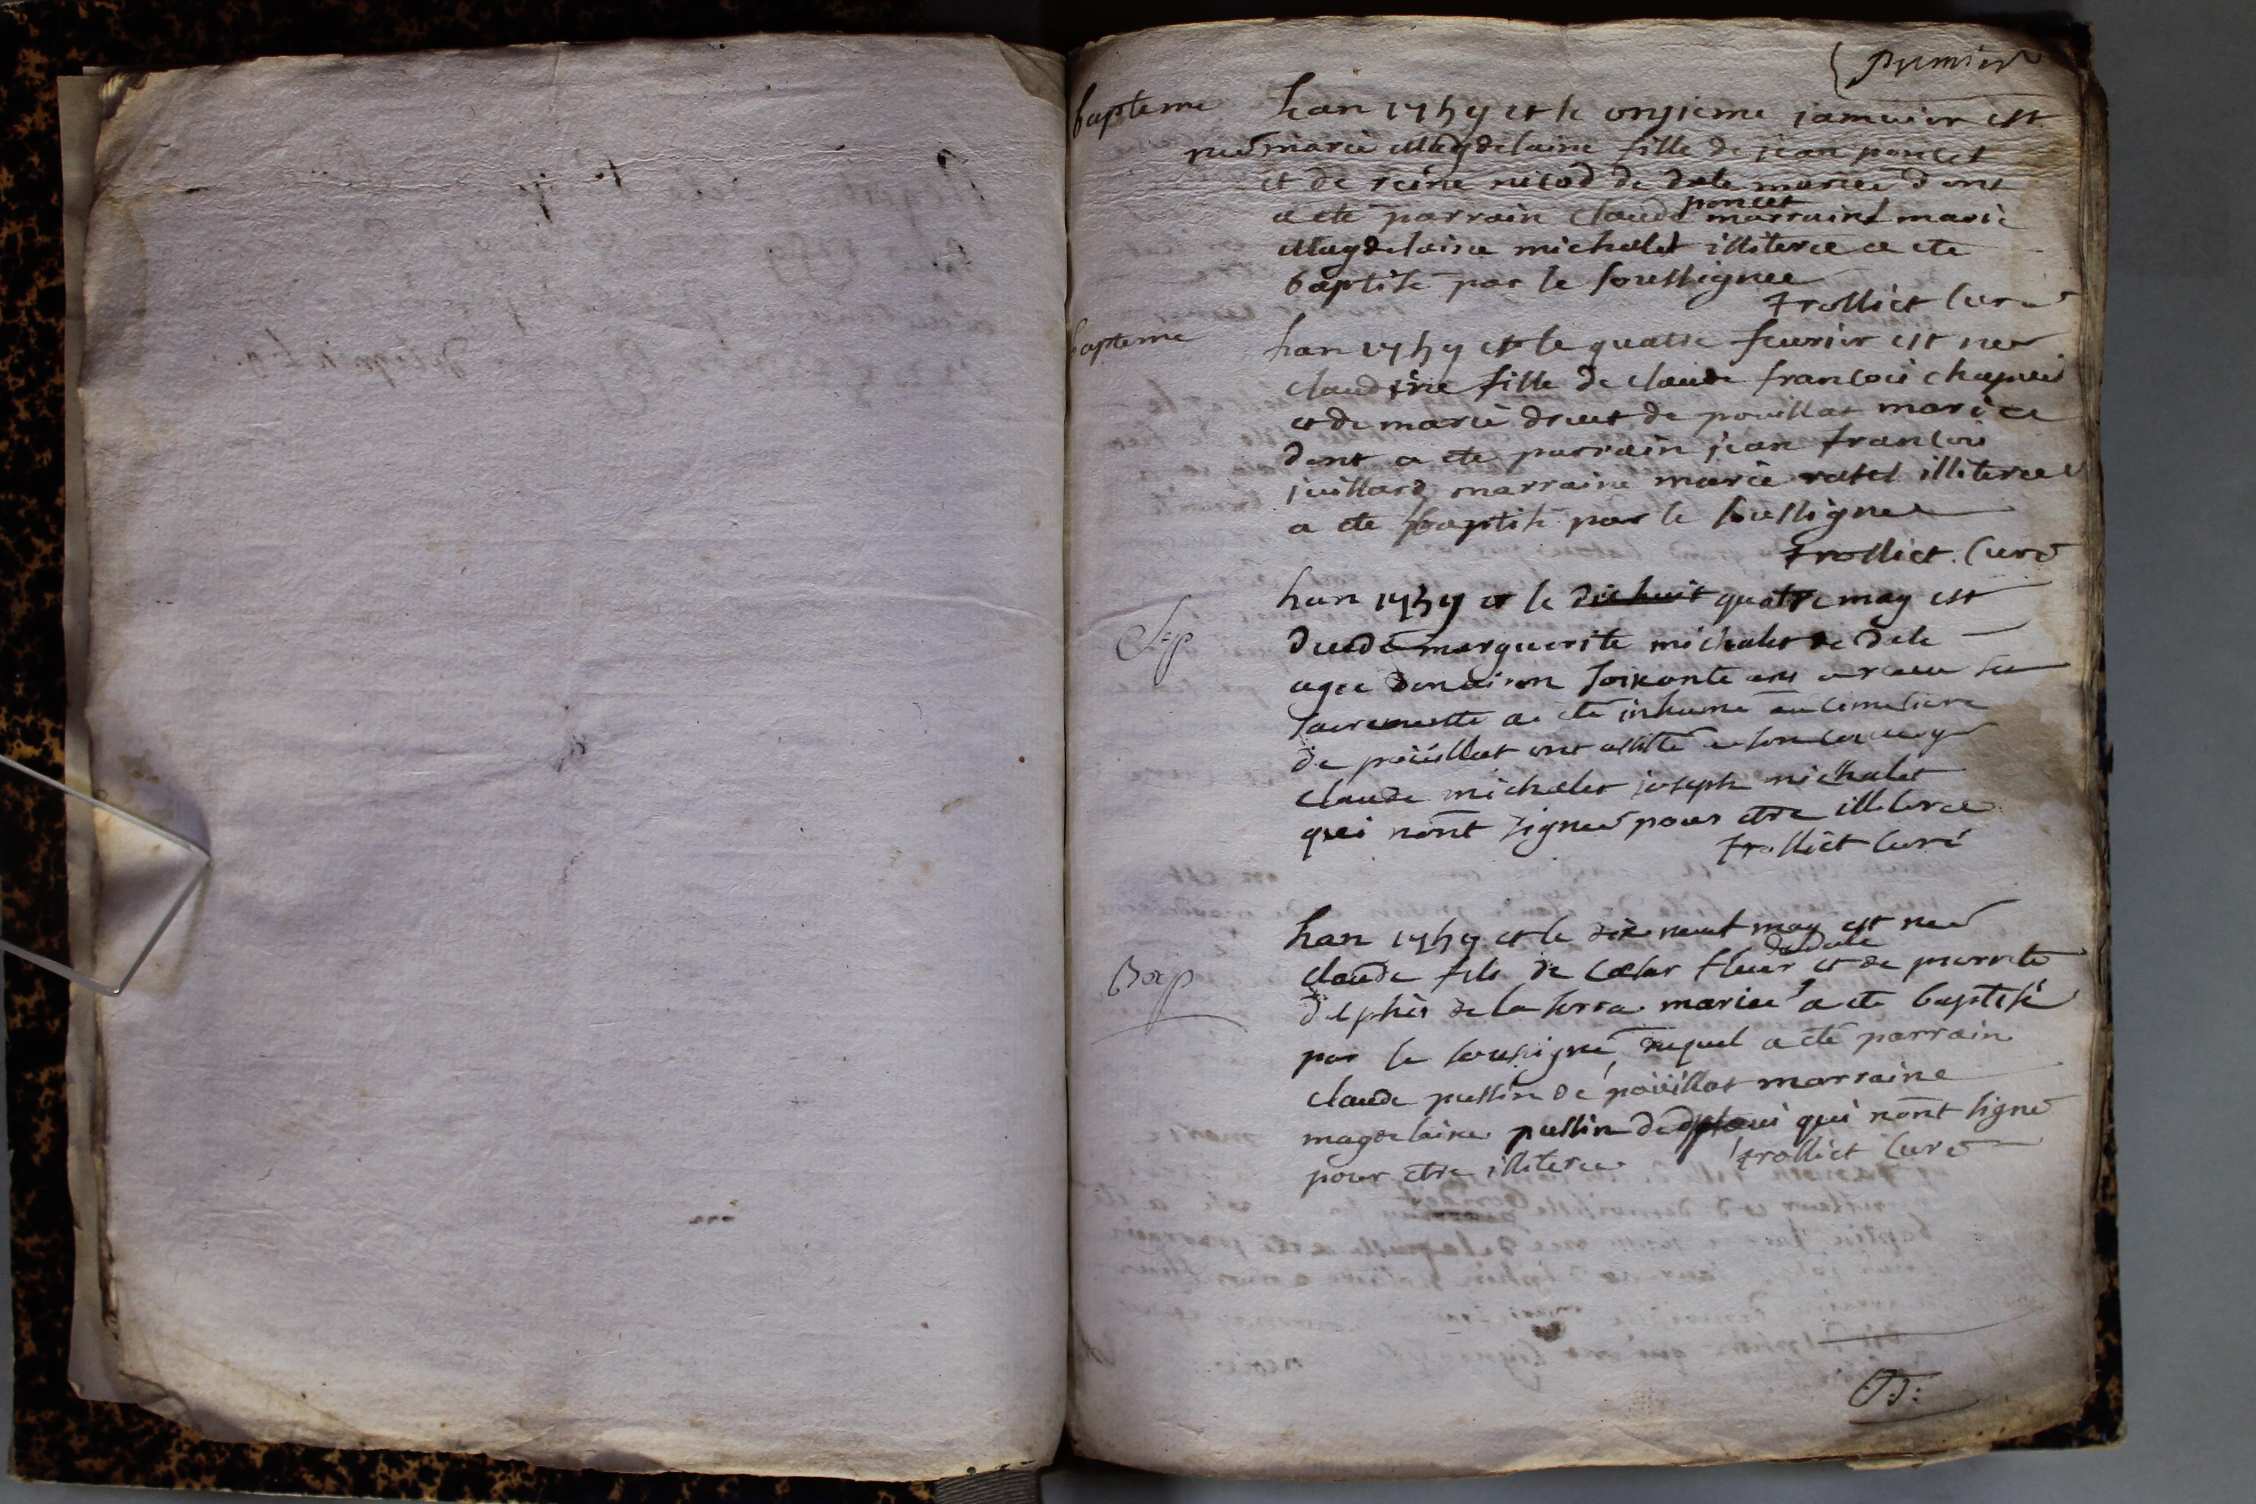 premier
bapteme
lan 1759 et le onzieme januier est
neé marie Magdelaine fille de jean poncet
et de reine nicod de dole mariée dont
a ete parrain claude poncet marraine marie
Magdelaine michalet illiterée a ete
baptisé par le soussignee
trolliet Curé
bapteme
lan 1759 et le quatre feurier est neé
claudine fille de claude francois chapuis
et de marie druet de pouillat mariée
dont a ete parrain jean francois
juillard marraine marie ratel illiterée
a ete baptisé par le soussignee
trolliet Curé
Sep
lan 1759 et le dix huit quatre may est
decedé marguerite michalet de dole
agee denuiron soixante ans a receu ses
sacrements a été inhumé au cimetiere
de poüillat ont assisté a son convoy
claude michalet joseph michalet
qui nont signé pour etre illiterée
trolliet Curé
Bap
lan 1759 et le dix neuf may est neé
claude fils de Cesar fleur de dole et de pierrette
delphin de la serra mariée a ete baptisé
par le sousigné, duquel a été parrain
claude pussin de poüillat marraine
magdelaine pussin de qui nont signé
pour etre illiterée trolliet Curé